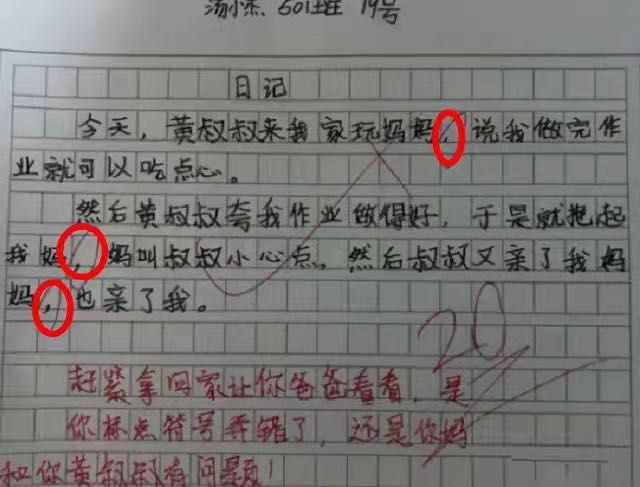 601班 19号
日记
今天，黄叔叔来我家玩妈妈，说我做完作
业就可以吃点心。
然后黄叔叔夸我作业做得好，于是就抱起
我妈，妈叫叔叔小心点，然后叔叔又亲了我妈
妈，也亲了我。
20
赶紧拿回家让你爸爸看看，是
你标点符号弄错了，还是你妈
和你黄叔叔有问题！